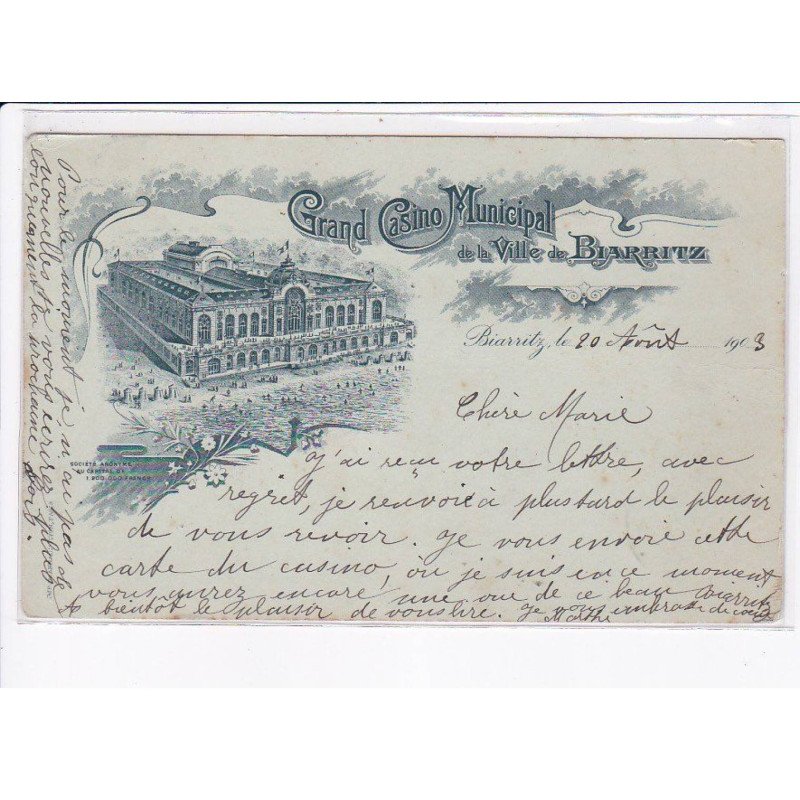 Grand Casino Municipal
de la Ville de Biarritz
Biarritz, le 20 Août 1903
Chère Marie
J'ai reçu votre lettre, avec
regret, je renvoie à plustard le plaisir
de vous revoir. Je vous envoie cette
carte du casino, où je suis en ce moment
vous aurez encore une vue de ce beau Biarritz
A bientôt le plaisir de vous lire. Je vous embrasse de cœur
Marthe
Pour le moment je n'ai pas de
nouvelles à vous écrire plus
longuement la prochaine fois.
SOCIÉTÉ ANONYME
AU CAPITAL DE
1.200.000 FRANCS